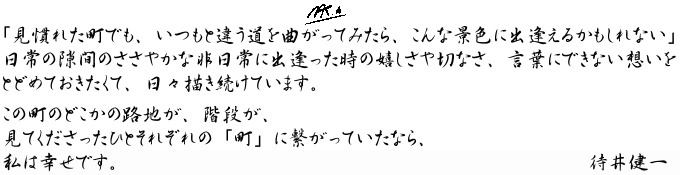 「見慣れた町でも、いつもと違う道を曲がってみたら、こんな景色に出逢えるかもしれない」
日常の隙間のささやかな非日常に出逢った時の嬉しさや切なさ、言葉にできない想いを
とどめておきたくて、日々描き続けています。
この町のどこかの路地が、階段が、
見てくださったひとそれぞれの「町」に繋がっていたなら、
私は幸せです。 待井健一